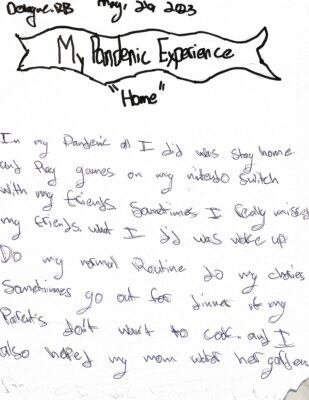 Dezayne.RB May, 26 2023
My Pandemic Experience
"Home"
In my Pandemic all I did was stay home
and Play games on my nintedo switch
with my friends. Sometimes I really missed
my friends. what I did was woke up
Do my normal Routine do my chories
Sometimes go out for dinner if my
Parents don't want to cook. and I
also helped my mom water her garden